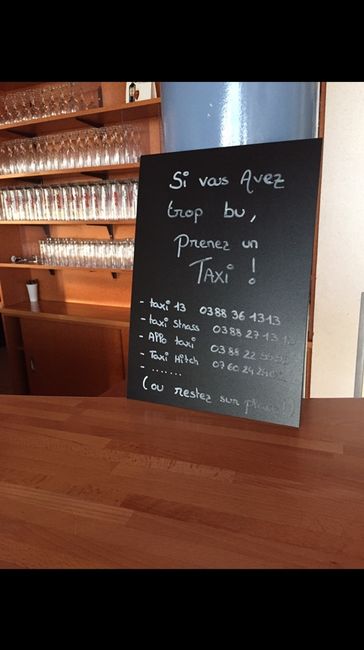 Si vous Avez
trop bu,
prenez un
TAXI !
- taxi 13 0388 36 1313
- taxi Strass 0388 27 13
- APPO taxi 0388 22
- Taxi Hitch 07 60 24 24
- .......
(ou restez sur